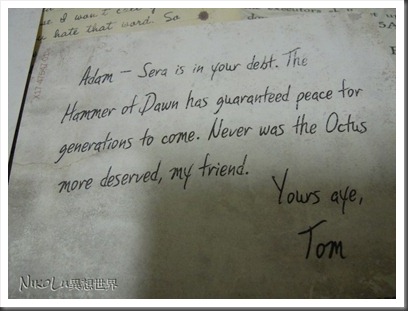 e I won't
hate that word. So
Adam – Sera is in your debt. The
Hammer of Dawn has guaranteed peace for
generations to come. Never was the Octus
more deserved, my friend.
Yours aye,
Tom
NIKOLU異想世界